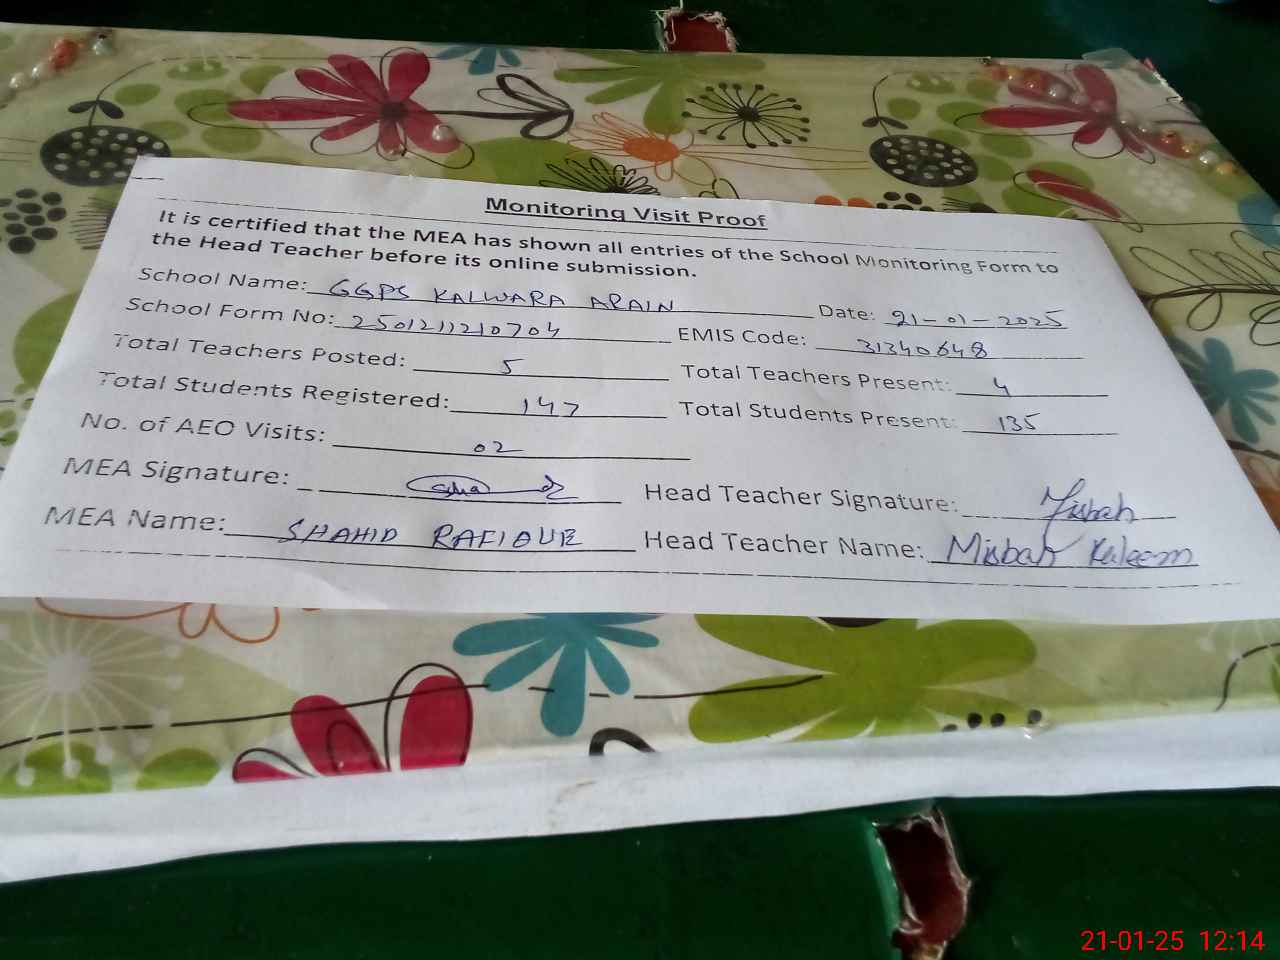 Monitoring Visit Proof
It is certified that the MEA has shown all entries of the School Monitoring Form to
the Head Teacher before its online submission.
School Name: GGPS KALWARA ARAIN Date: 21-01-2025
School Form No: 2501211210704 EMIS Code: 31340648
Total Teachers Posted: 5 Total Teachers Present: 4
Total Students Registered: 147 Total Students Present: 135
No. of AEO Visits: 02
MEA Signature: Head Teacher Signature: Misbah
MEA Name: SHAHID RAFIQUE Head Teacher Name: Misbah Kaleem
21-01-25 12:14